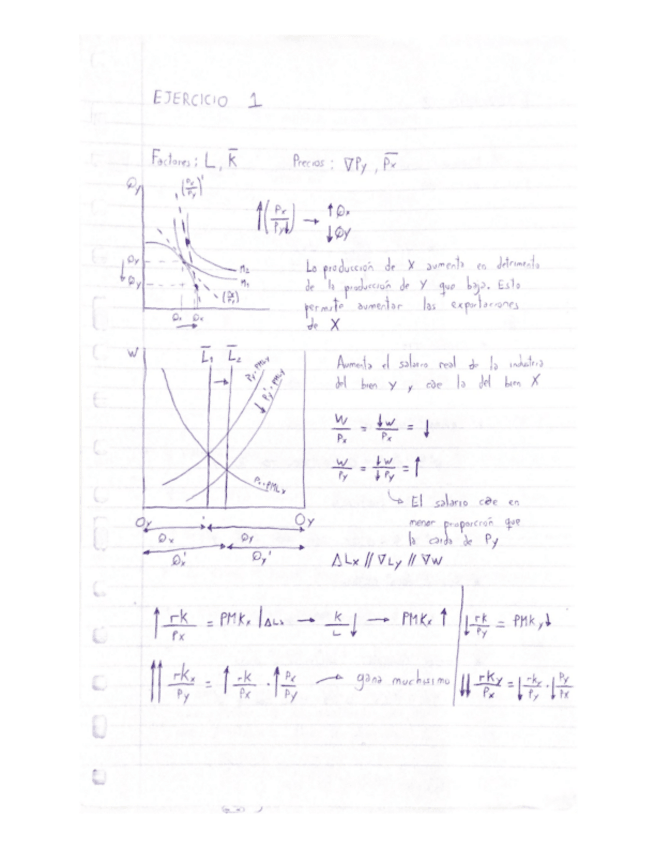 EJERCICIO 1
Factores: L, K̅ Precios: ∇Py, P̅x
Qy
(Px/Py)'
↑(Px/Py↓) → ↑Qx
↓Qy
La producción de X aumenta en detrimento
de la producción de Y que baja. Esto
permite aumentar las exportaciones
de X
Qy
↓Qy
M2
M1
(Px/Py)
Qx Qx
W L̅1 L̅2
Py·PMLy
↓Py'·PMLy
Px·PMLx
Aumenta el salario real de la industria
del bien Y y cae la del bien X
W/Px = ↓W/Px = ↓
W/Py = ↓W/↓Py = ↑
El salario cae en
menor proporción que
la caída de Py
Oy Oy
Qx Qy
Qx' Qy'
ΔLx // ∇Ly // ∇W
↑ rk/Px = PMKx |ΔLx → K/L ↓ → PMKx ↑ | ↓ rk/Py = PMKy ↓
↑↑ rkx/Py = ↑ rk/Px · ↑ Px/Py → gana muchísimo | ↓↓ rky/Px = ↓ rky/Py · ↓ Py/Px